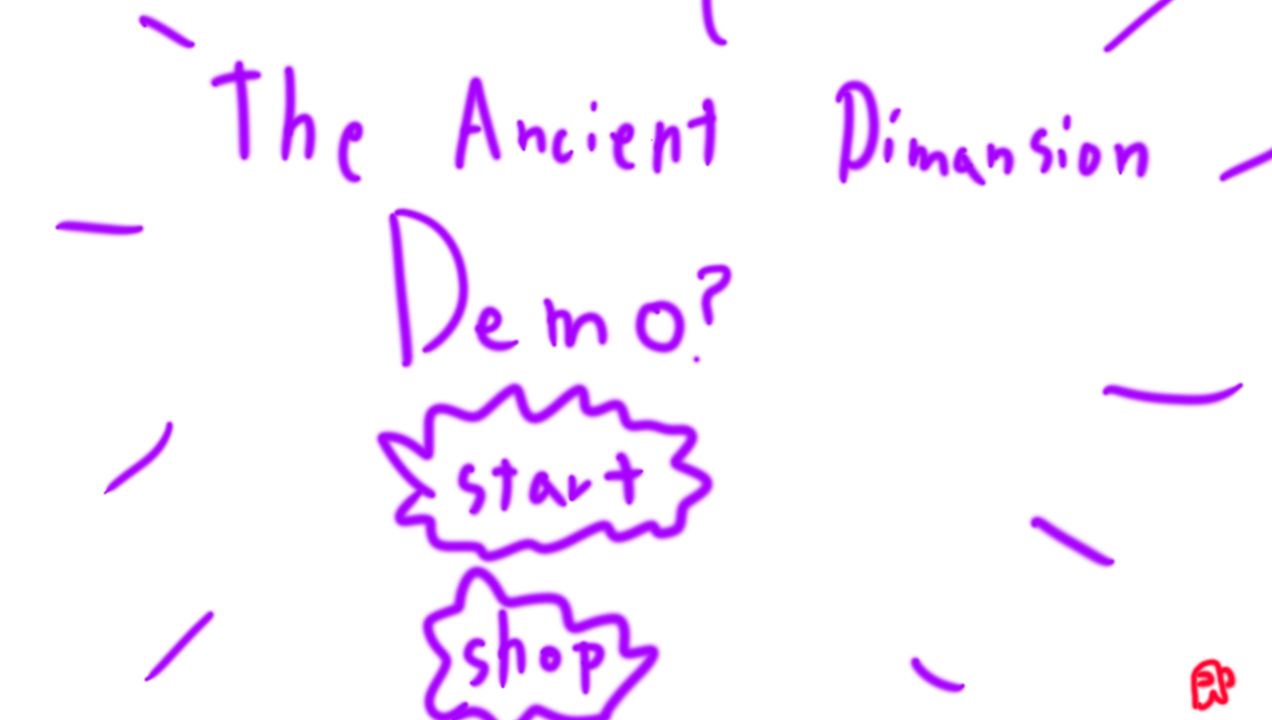 The Ancient Dimansion
Demo?
start
shop